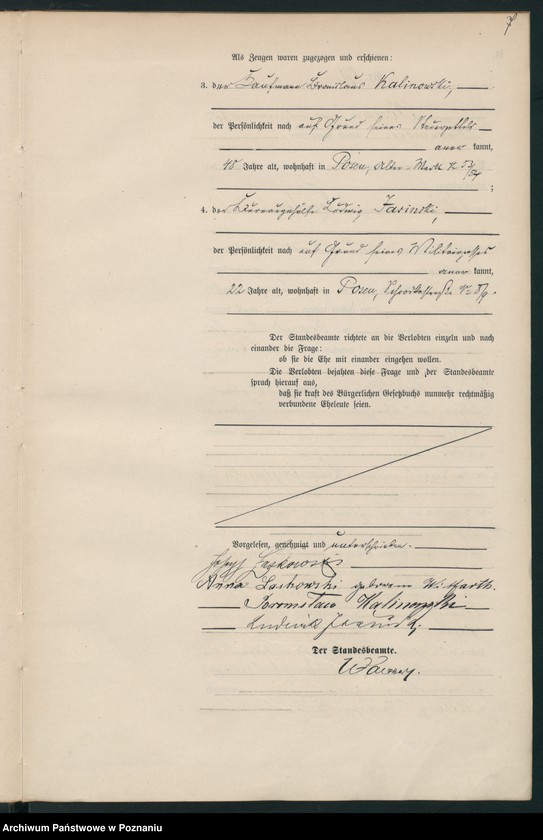 Als Zeugen waren zugezogen und erschienen:
3. der Kaufmann Bronislaus Kalinowski,
der Persönlichkeit nach auf Grund seines Steuerzettels
aner kannt,
48 Jahre alt, wohnhaft in Posen, Alter Markt № 53/54
;
4. der Bureaugehülfe Ludwig
der Persönlichkeit nach auf Grund seines Militairpasses
aner kannt,
22 Jahre alt, wohnhaft in Posen,
Der Standesbeamte richtete an die Verlobten einzeln und nach
einander die Frage:
ob sie die Ehe mit einander eingehen wollen.
Die Verlobten bejahten diese Frage und der Standesbeamte
sprach hierauf aus,
daß sie kraft des Bürgerlichen Gesetzbuchs nunmehr rechtmäßig
verbundene Eheleute seien.
Vorgelesen, genehmigt und unterschrieben.
Joseph
Anna geborene
Bronisław Kalinowski
Ludwik
Der Standesbeamte.
Archiwum Państwowe w Poznaniu